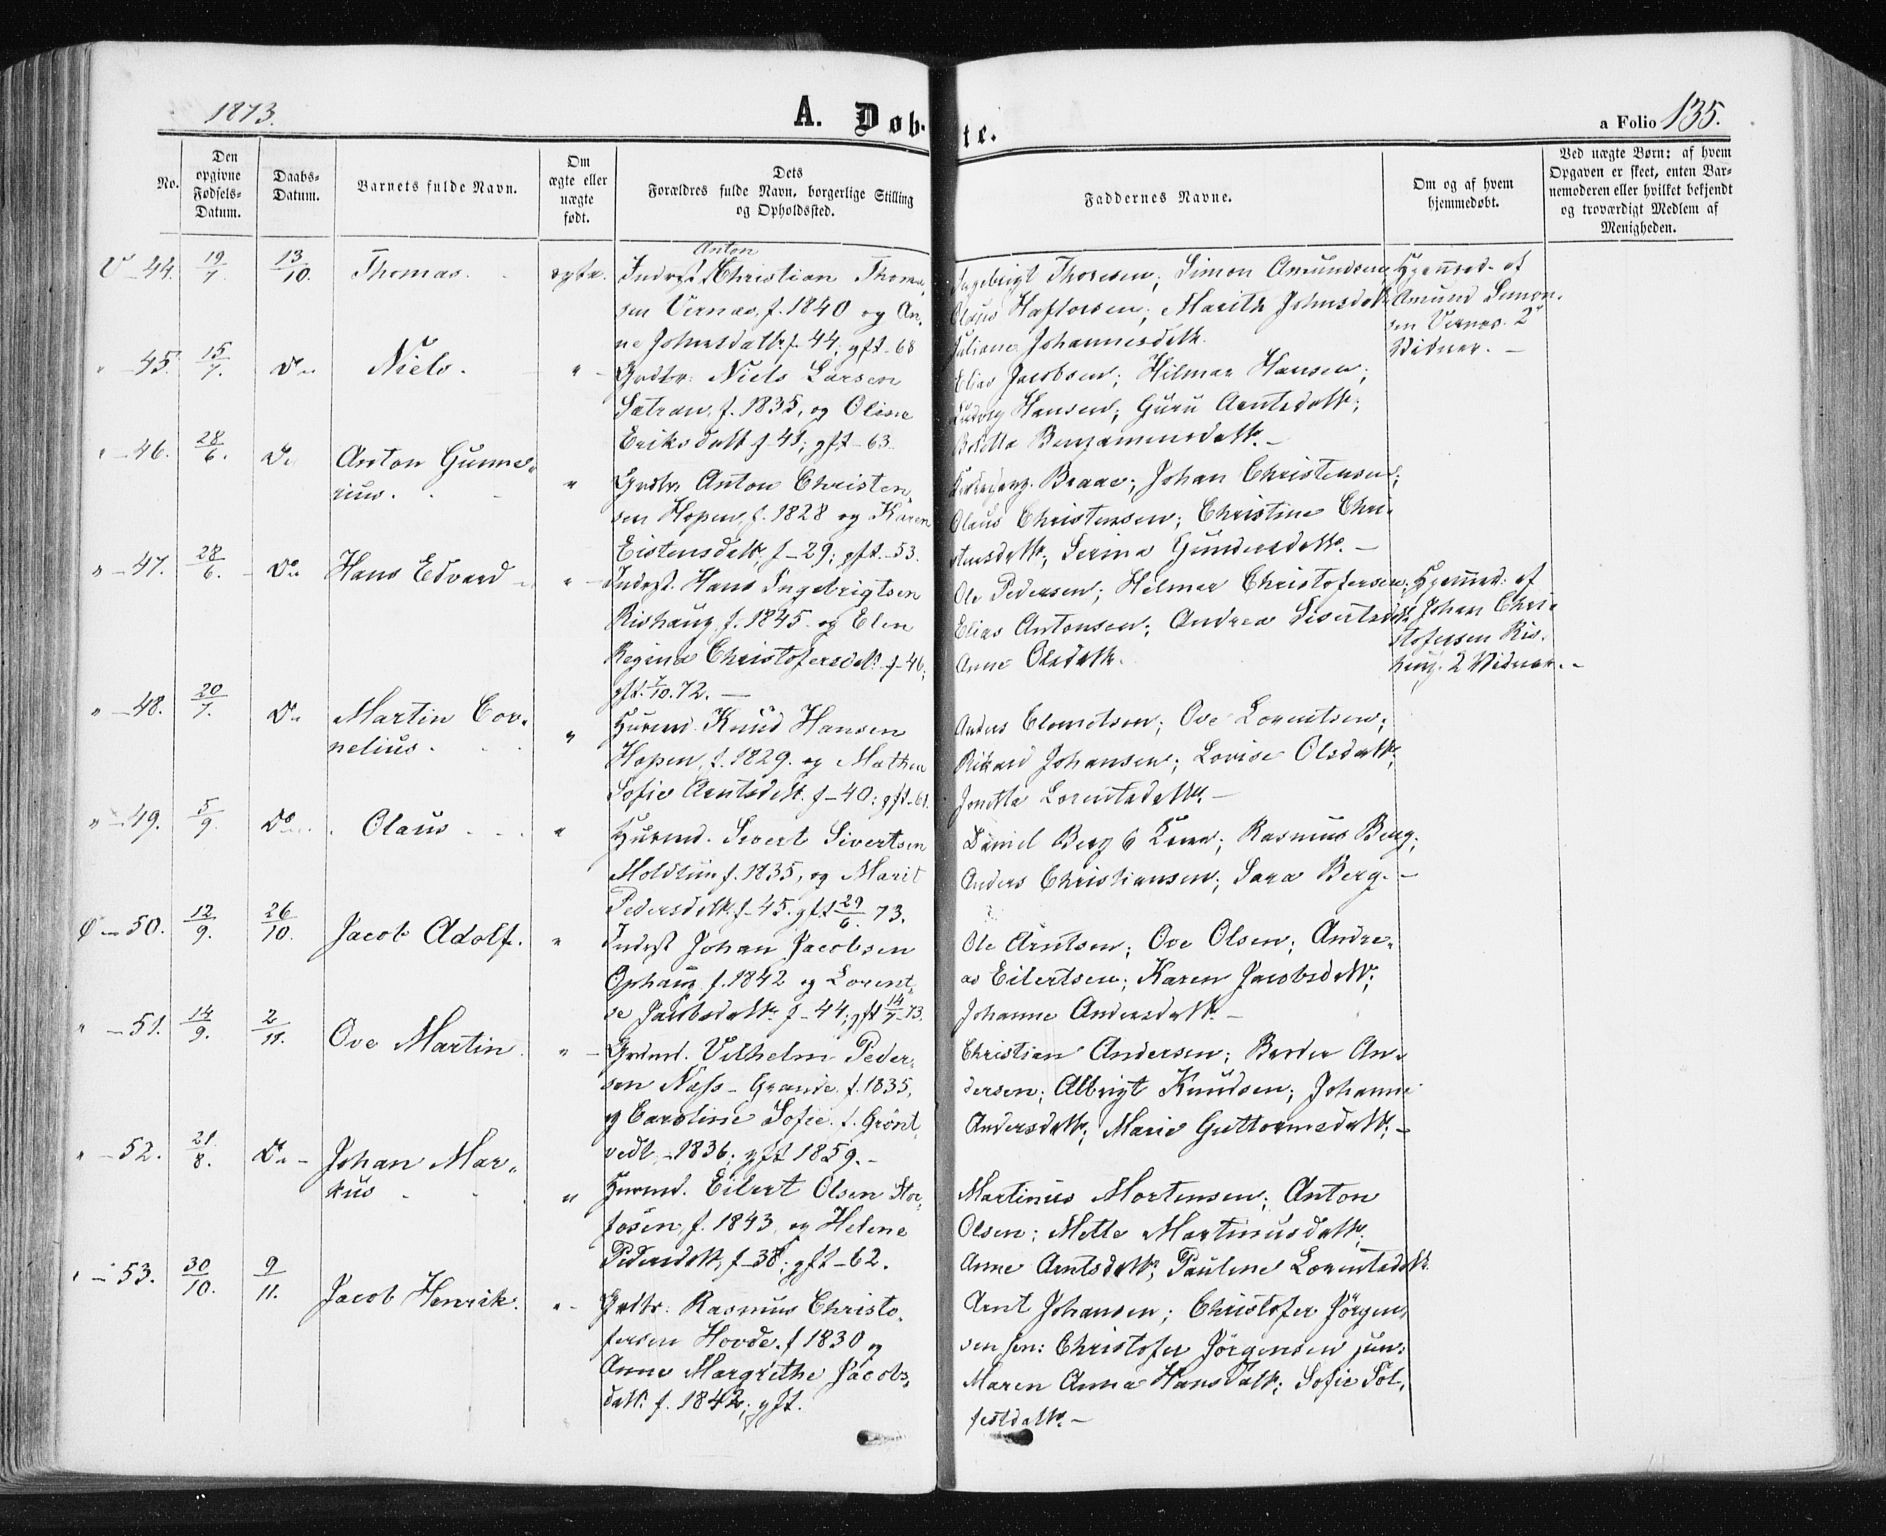 1873.
A. Døb-
te.
a Folio 135.
No.
Den opgivne Fødsels-Datum.
Daabs-Datum.
Barnets fulde Navn.
Om ægte eller uægte født.
Dets Forældres fulde Navn, borgerlige Stilling og Opholdssted.
Faddernes Navne.
Om og af hvem hjemmedøbt.
Ved uægte Børn: af hvem Opgaven er skeet, enten Barnemoderen eller hvilket bekjendt og troværdigt Medlem af Menigheden.
44. 19/7. 13/10. Thomas. ægte.
Anton
Inderst Christian Thoma-
sen Vernæs, f. 1840 og An-
ne Johnsdattr f. 44; gft - 68
Ingebrigt Thoresen; Simon Amundsen
Olaus Haftorsen; Marith Johnsdattr
Juliane Johannesdattr.
Hjemmed. af
Amund Simon-
sen Vernæs. 2
Vidner. -
" - 45. 15/7. Do Niels. "
Gaardbr. Niels Larsen
Sætran, f. 1835, og Oline
Eriksdatt f 41; gft - 63.
Elias Jacobsen; Hilmar Hansen;
Ludvig Hansen; Guru Arntsdattr;
Benjaminsdattr. -
" - 46. 28/6. Do Anton Gunne-
rius. "
Gaardbr. Anton Christen-
sen Hopen, f. 1828 og Karen
Eistensdattr, f - 29; gft - 53.
Braae; Johan Christensen;
Olaus Christensen; Christine Chri-
stensdattr; Serina Gundersdattr. -
" - 47. 28/6. Do Hans Edvard "
Inderst. Hans Ingebrigtsen
Rishaug, f. 1845. og Elen
Regina Christofersdatt. f - 46;
gft. 7/10. 72. -
Ole Pedersen; Helmer Christofersen;
Elias Antonsen; Andrea Sivertsdattr
Anne Olsdattr.
Hjemmed: af
Johan Chri-
stofersen Ris-
haug. 2 Vidner. -
" - 48. 20/7. Do Martin Cor-
nelius. "
Husmd. Knud Hansen
Hopen, f. 1829. og Mathea
Sofie Arntsdattr. f - 40; gft - 61.
Anders Clemetsen; Ove Lorentsen;
Rikard Johansen; Lovise Olsdattr;
Jonetta Lorentsdattr. -
" - 49. 5/9. Do Olaus "
Husmd. Sivert Sivertsen
Moldtun f. 1835, og Marit
Pedersdattr f - 45. gft 29/6. 73.
Daniel Berg & Kone; Rasmus Berg;
Anders Christiansen; Sara Berg. -
50. 12/9. 26/10. Jacob Adolf. "
Inderst Johan Jacobsen
Ophaug f. 1842 og Lorent-
se Jacobsdattr. f - 44; gft 14/7 - 73.
Ole Arntsen; Ove Olsen; Andre-
as Eilertsen; Karen Jacobsdattr;
Johanne Andersdattr. -
" - 51. 14/9. 2/11. Ove Martin. "
Gaardmd. Vilhelm Peder-
sen Næss - Grande. f. 1835,
og Caroline Sofie. f. Grönt-
vedt - 1836; gft 1859. -
Christian Andersen; Berder An-
dersen; Albrigt Knudsen; Johanne
Andersdattr; Marie Guttormsdattr; -
" - 52. 21/8. Do - Johan Mar-
kus "
Husmd. Eilert Olsen Stor-
fosen f. 1843 og Helene
Pedersdattr, f - 38; gft - 62.
Martinus Mortensen; Anton
Olsen; Mette Martinusdattr;
Anne Arntsdattr; Pauline Lorentsdattr.
" - 53. 30/10. 9/11. Jacob Henrik. "
Gaardbr. Rasmus Christo-
fersen Hovde. f 1830 og
Anne Margrethe Jacobs-
datt. f. 1842; gft.
Arnt Johansen; Christofer Jörgen-
sen sen: Christofer Jörgensen jun:
Maren Anna Hansdattr; Sofie Tol-
festdattr. -